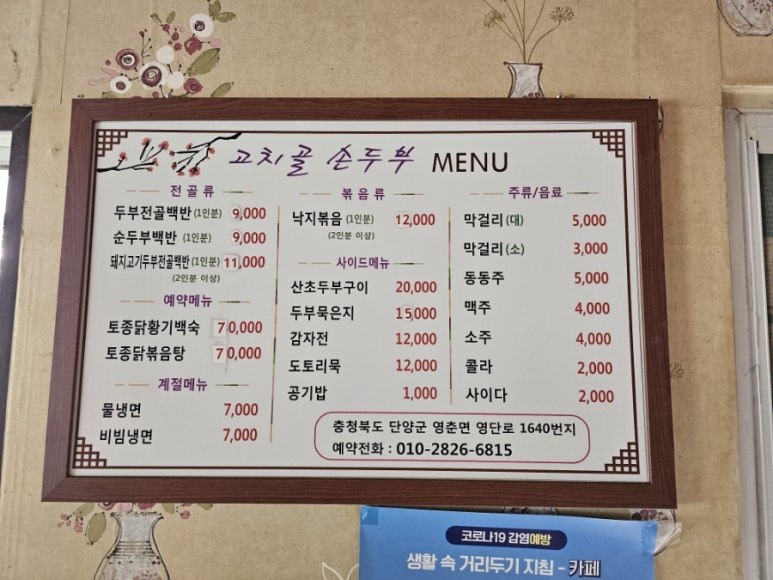 고치골 손두부 MENU
전골류
두부전골백반 (1인분) 9,000
순두부백반 (1인분) 9,000
돼지고기두부전골백반 (1인분) 11,000
(2인분 이상)
예약메뉴
토종닭황기백숙 70,000
토종닭볶음탕 70,000
계절메뉴
물냉면 7,000
비빔냉면 7,000
볶음류
낙지볶음 (1인분) 12,000
(2인분 이상)
사이드메뉴
산초두부구이 20,000
두부묵은지 15,000
감자전 12,000
도토리묵 12,000
공기밥 1,000
주류/음료
막걸리(대) 5,000
막걸리(소) 3,000
동동주 5,000
맥주 4,000
소주 4,000
콜라 2,000
사이다 2,000
충청북도 단양군 영춘면 영단로 1640번지
예약전화 : 010-2826-6815
코로나19 감염예방
생활 속 거리두기 지침 - 카페